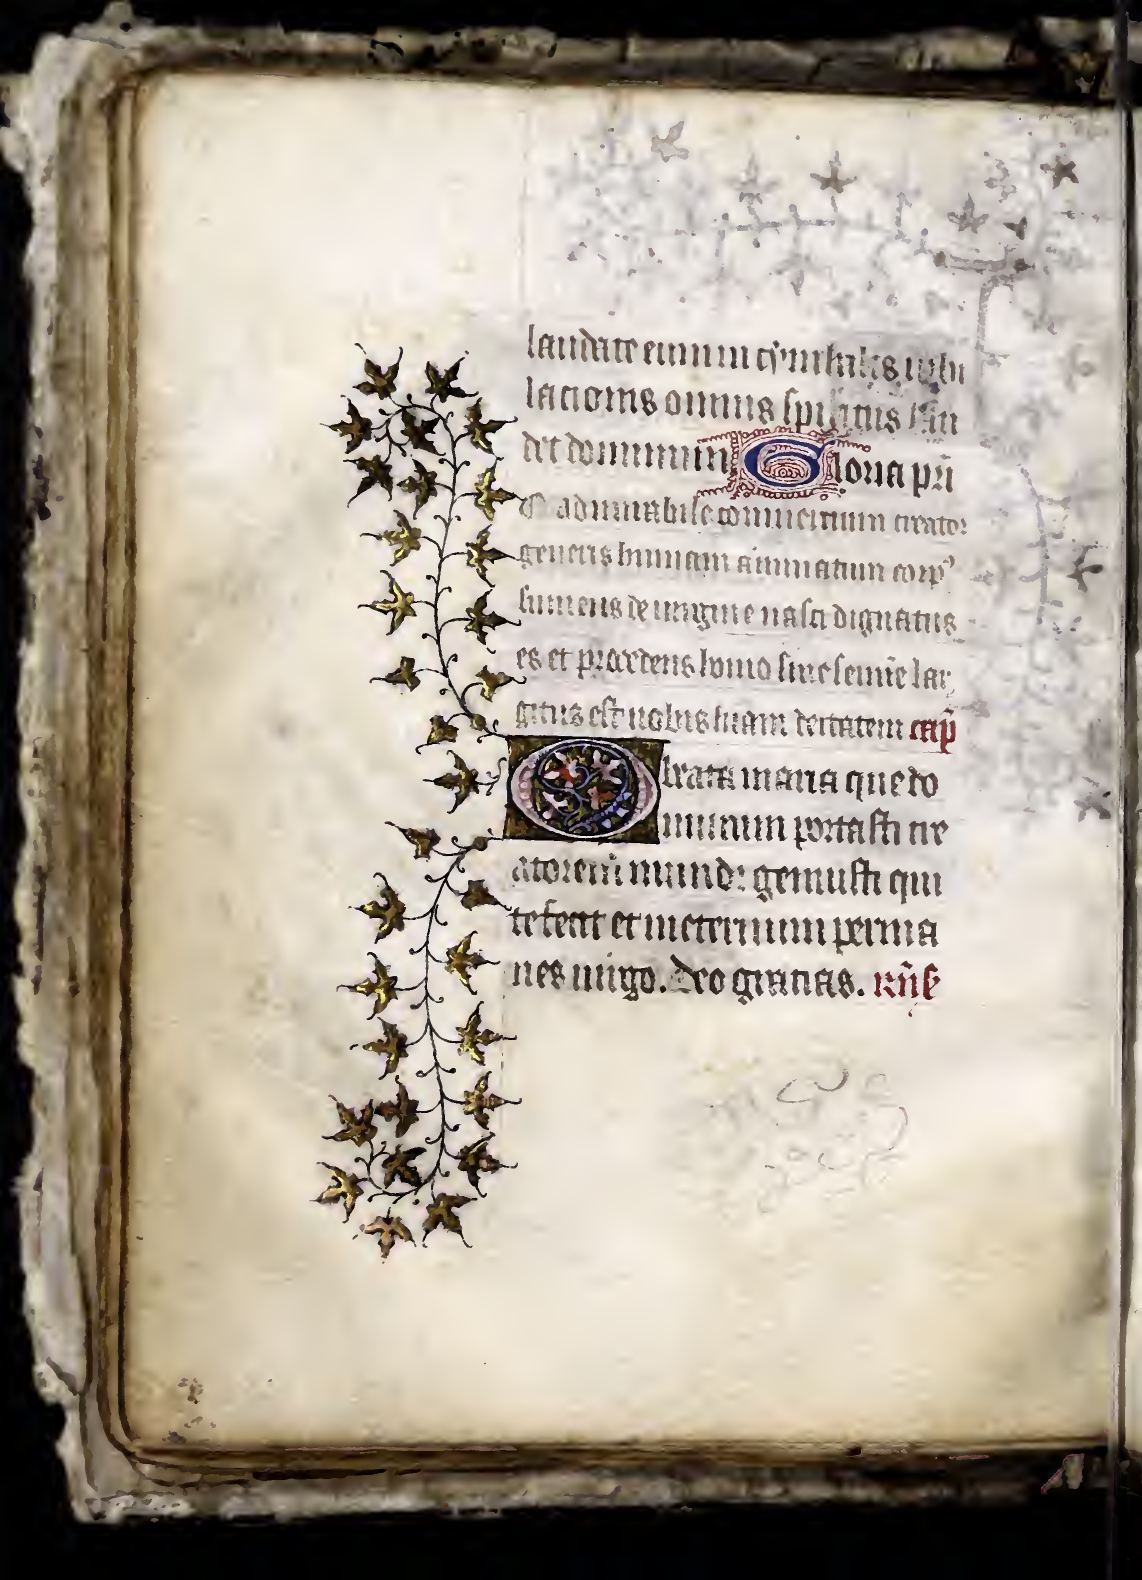 laudate eum in cymbalis iubi
lacionis omnis spiritus lau
det dominum Gloria pr̄i
O admirabile commertium creator
generis humani animatum corp᾽
sumens de uirgine nasci dignatus
es et procedens homo sine semīe lar
gitus est nobis suam deitatem cap̄
O beata maria que do
minum portasti cre
atorem mundi genuisti qui
te fecit et in eternum perma
nes uirgo. Deo gracias.